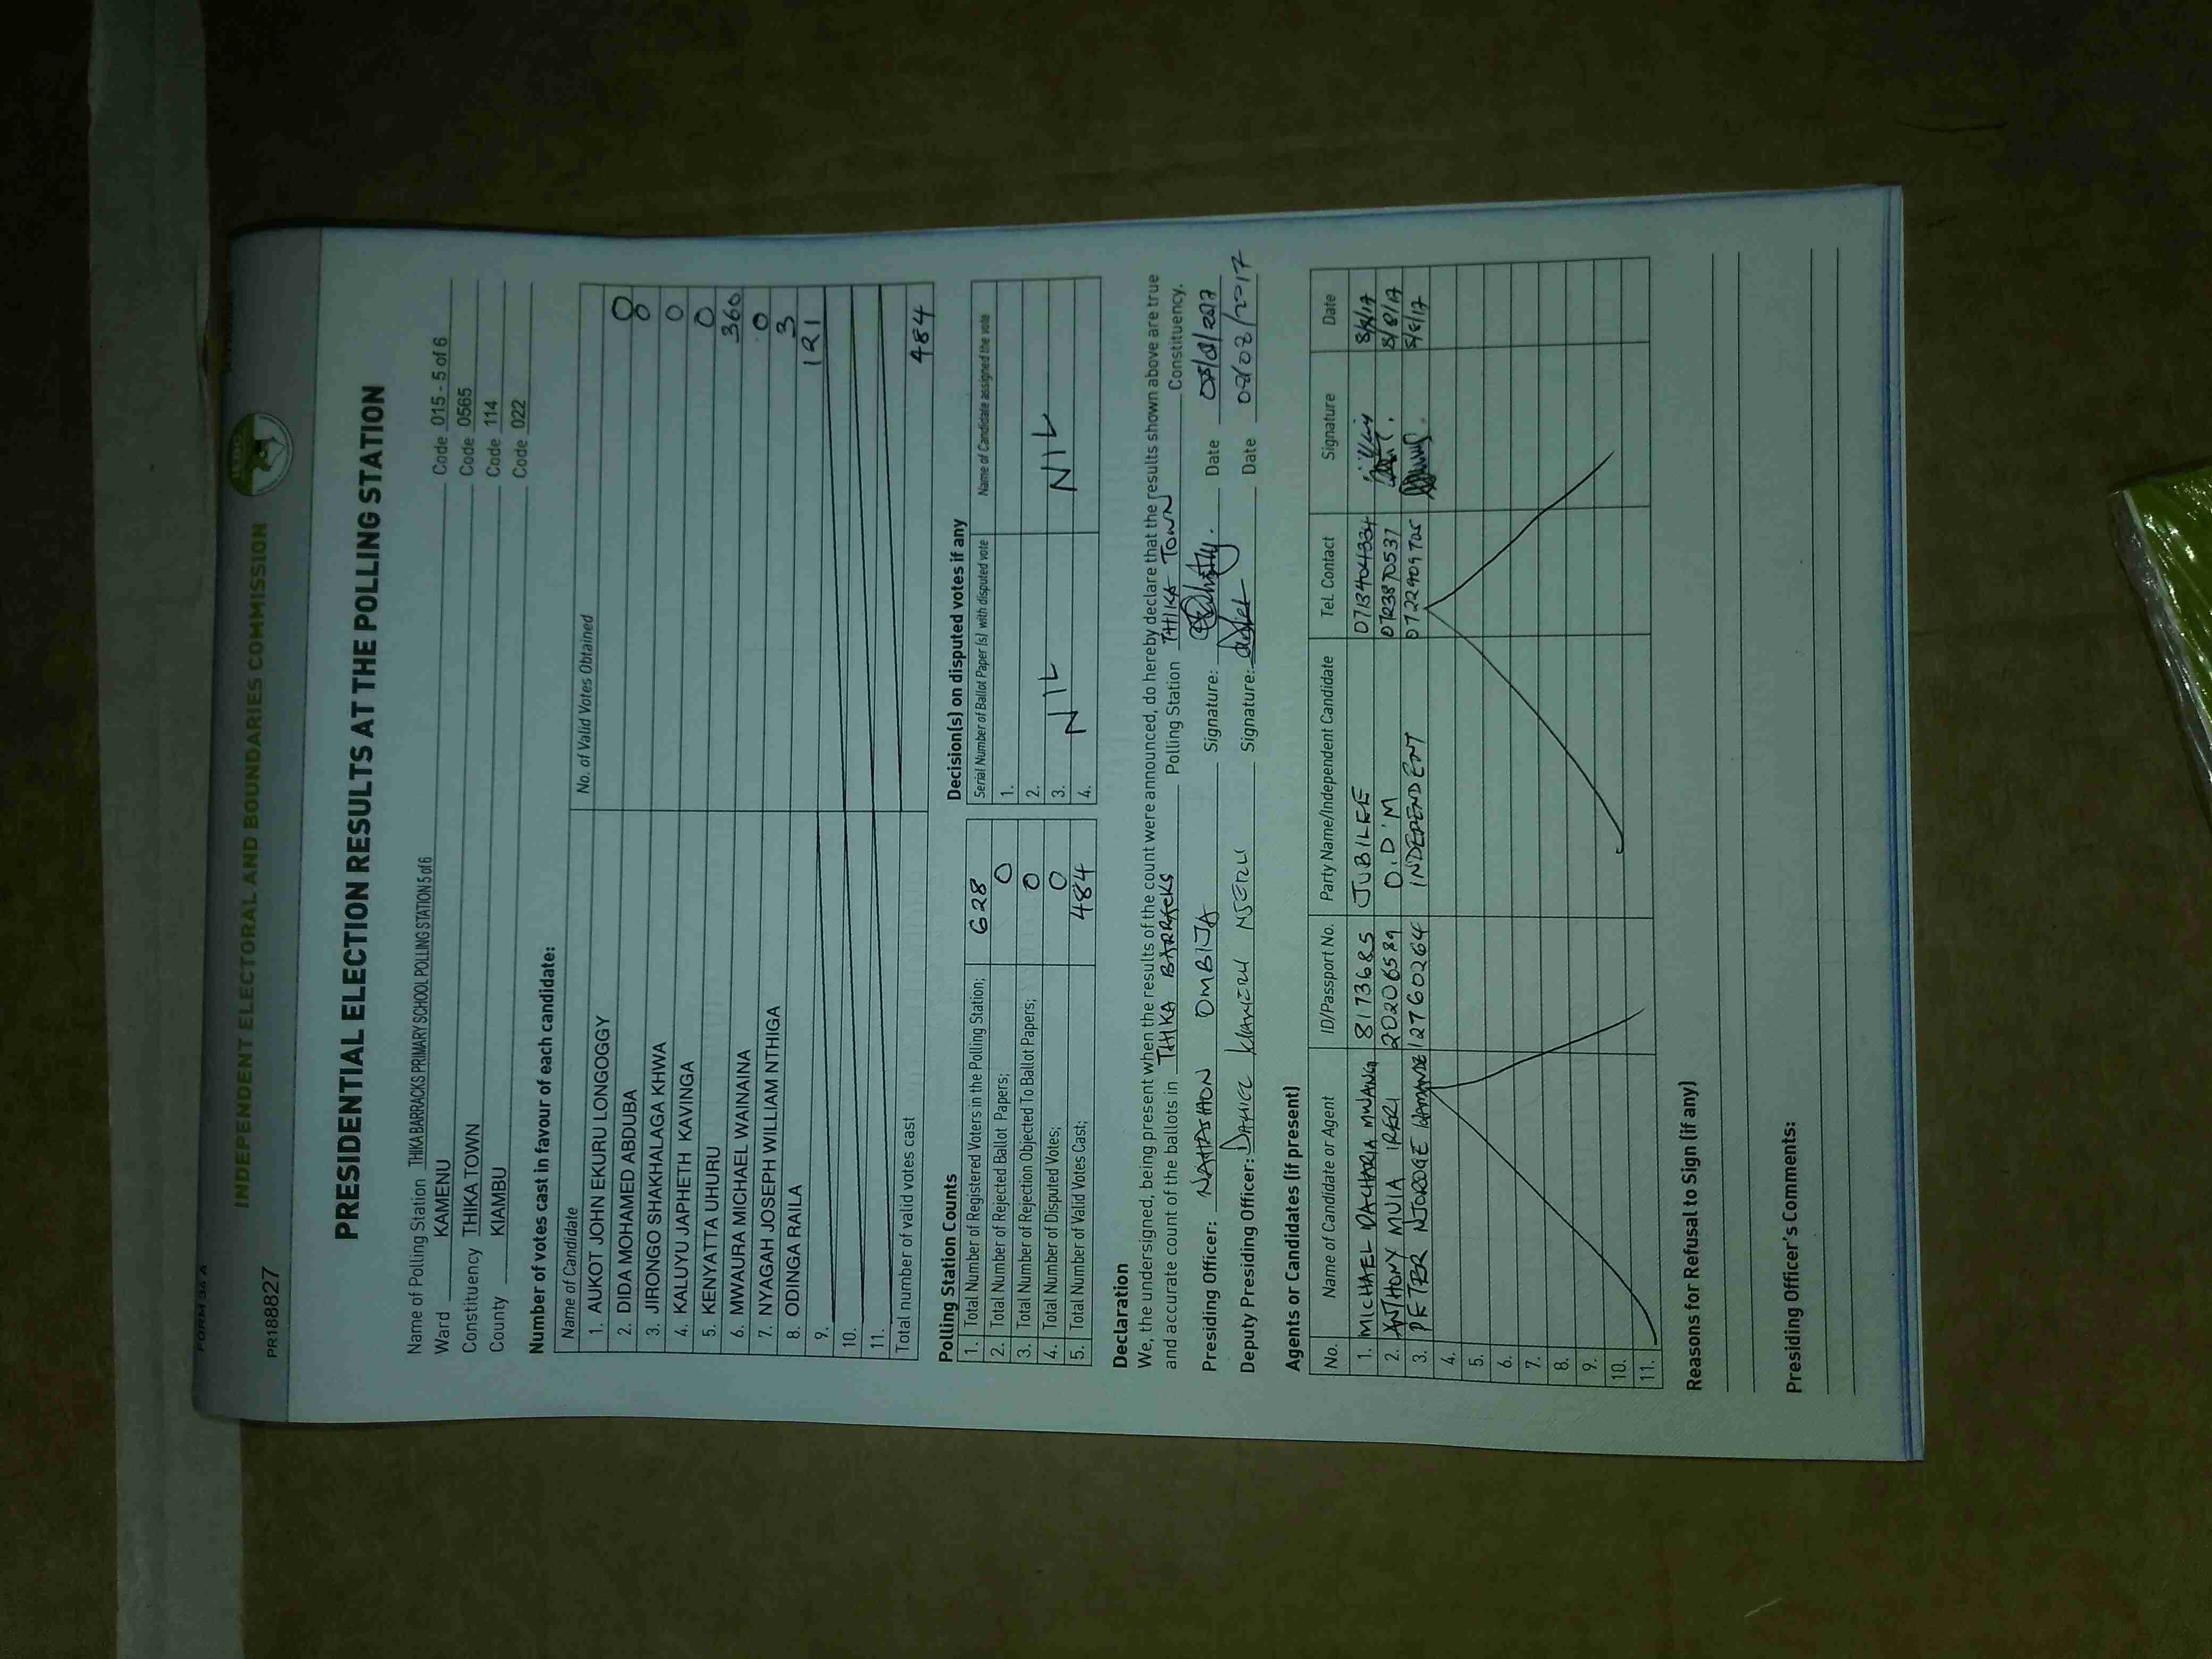 FORM 34 A
INDEPENDENT ELECTORAL AND BOUNDARIES COMMISSION
PR188827
PRESIDENTIAL ELECTION RESULTS AT THE POLLING STATION
Name of Polling Station THIKA BARRACKS PRIMARY SCHOOL POLLING STATION 5 of 6 Code 015 - 5 of 6
Ward KAMENU Code 0565
Constituency THIKA TOWN Code 114
County KIAMBU Code 022
Number of votes cast in favour of each candidate:
Name of Candidate No. of Valid Votes Obtained
1. AUKOT JOHN EKURU LONGOGGY 0
2. DIDA MOHAMED ABDUBA 0
3. JIRONGO SHAKHALAGA KHWA 0
4. KALUYU JAPHETH KAVINGA 0
5. KENYATTA UHURU 360
6. MWAURA MICHAEL WAINAINA 0
7. NYAGAH JOSEPH WILLIAM NTHIGA 3
8. ODINGA RAILA 121
9.
10.
11.
Total number of valid votes cast 484
Polling Station Counts
1. Total Number of Registered Voters in the Polling Station; 628
2. Total Number of Rejected Ballot Papers; 0
3. Total Number of Rejection Objected To Ballot Papers; 0
4. Total Number of Disputed Votes; 0
5. Total Number of Valid Votes Cast; 484
Decision(s) on disputed votes if any
Serial Number of Ballot Paper (s) with disputed vote Name of Candidate assigned the vote
1.
2.
3. NIL NIL
4.
Declaration
We, the undersigned, being present when the results of the count were announced, do hereby declare that the results shown above are true
and accurate count of the ballots in THIKA BARRACKS Polling Station THIKA TOWN Constituency.
Presiding Officer: NAHASHON OMBIJA Signature: Date 08/08/2017
Deputy Presiding Officer: DANIEL Signature: Date 08/08/2017
Agents or Candidates (if present)
No. Name of Candidate or Agent ID/Passport No. Party Name/Independent Candidate Tel. Contact Signature Date
1. MICHAEL MWANGI 8173685 JUBILEE 0713404334 8/8/17
2. ANTHONY MUIA IRERI 20206589 O.D'M 0723870537 8/8/17
3. PETER NJOROGE 12760264 INDEPENDENT 0722909705 8/8/17
4.
5.
6.
7.
8.
9.
10.
11.
Reasons for Refusal to Sign (if any)
Presiding Officer's Comments: